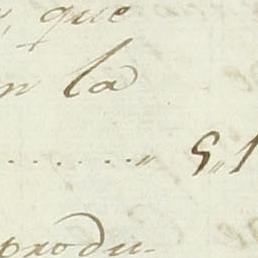 , que
n la
....... 5,,1
produ-